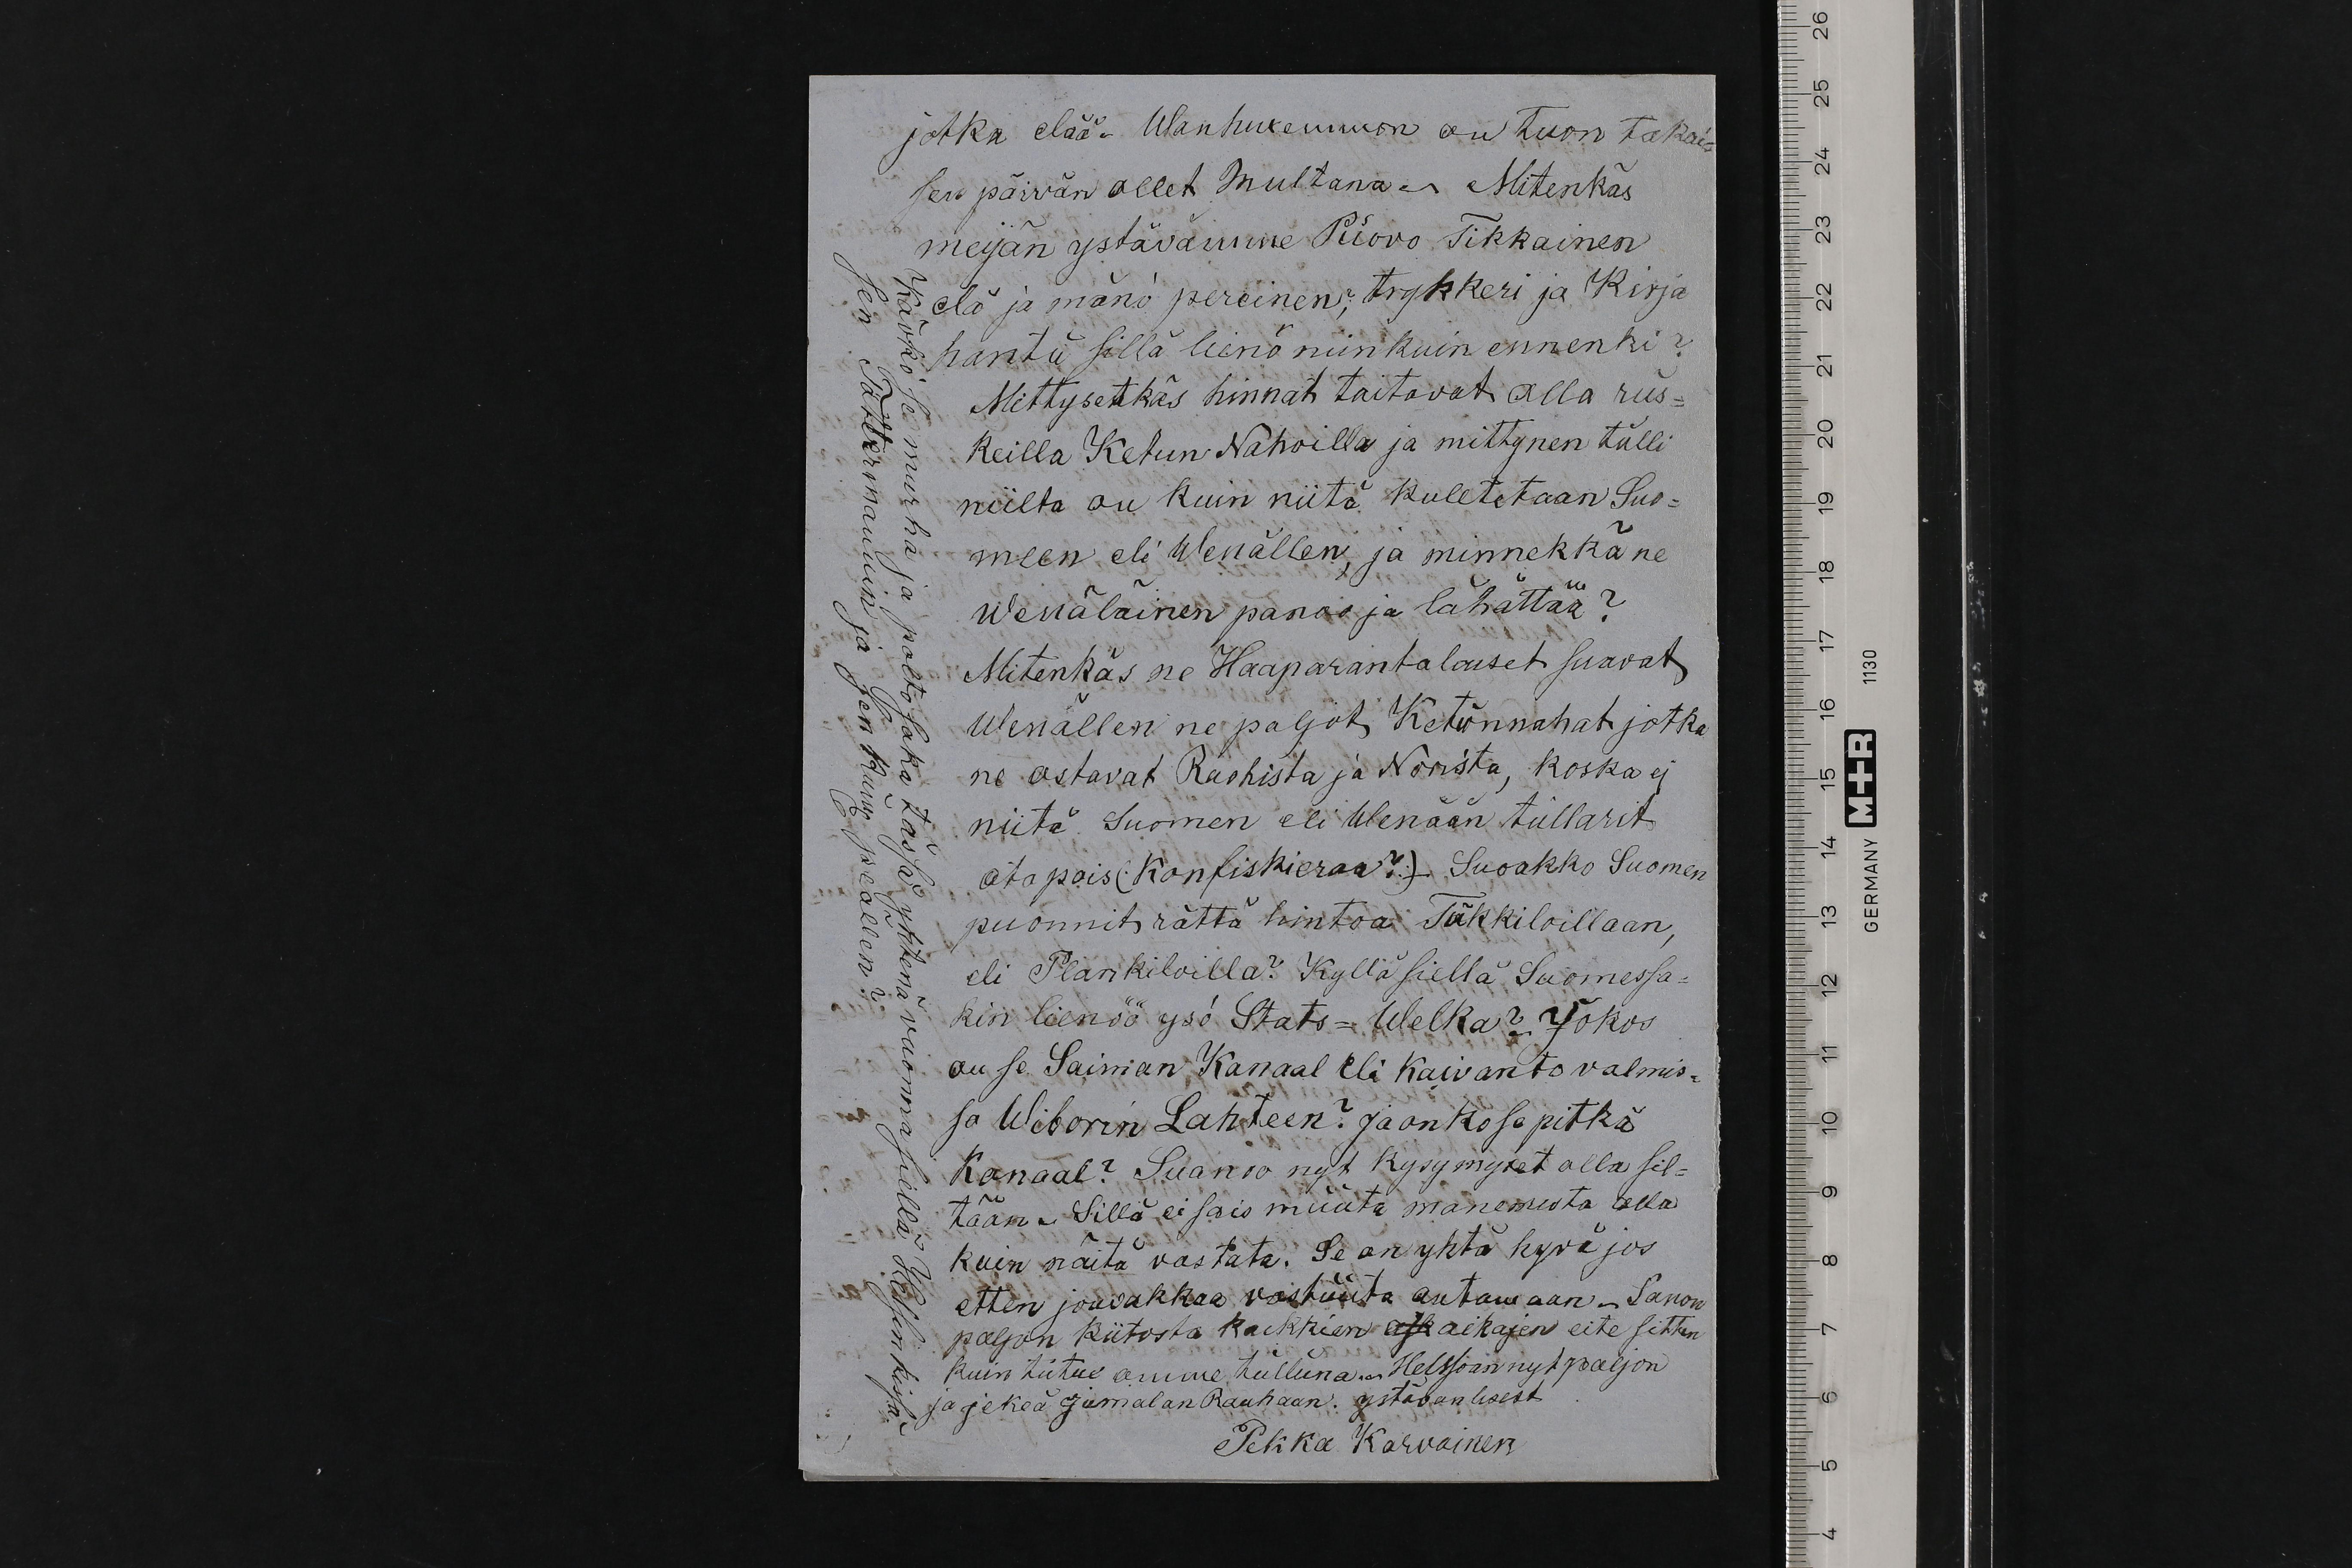 jotka elää. Wanhuxemmon on tuon takai-
sen päivän ollet Multana. Mitenkäs
meijän ystävämme Püovo Tikkainen
elä ja mänö pereinen; trykkeri ja Kirja
hantü sillä lienö niinkuin ennenki?
Mittysetkäs hinnat taitavat alla rus=
keilla Ketun Nahoilla ja mittynen tulli
niiltä on kuin niitä kuletetaan Suo=
meen eli Wenällen, ja minnekkä ne
Wenäläinen panoo ja lähättää?
Mitenkäs ne Haaparantalaiset suavat
Wenällen ne paljot Ketünnahat jotka
ne ostavat Ruohista ja Norista, koska ej
niitä Suomen eli Wenään tüllarit
ota pois (: Konfiskieraa?:) Suoakko Suomen
puonnit rättä hintoa Täkkiloillaan,
eli Plankiloilla? Kyllä siellä Suomessa=
kin lienöö ysö Stats=Welka? Jokos
on se Saiman Kanaal eli Kaivanto valmis=
sa Wiborin Lahteen? ja onko se pitkä
Kanaal? Suanoo nyt kysymyxet olla sil=
tään. Sillä ei sais muuta manemista olla
kuin näitä vastata. Se on yhtä hyvä jos
etten jouvakkaa vastüüta antamaan. Sanon
paljon kiitosta kaikkien aikajen eite sitten
kuin tütüt omme tulluna. Helssöän nyt paljon
ja jekeä Jumalan Rauhaan. ystävänlisest
Pekka Karvainen
Kävikö se murha ja polto haka täshä yhtenä vuonna sillä Helsinkissä
sen Tätterman'in ja sen Kunn peällen?